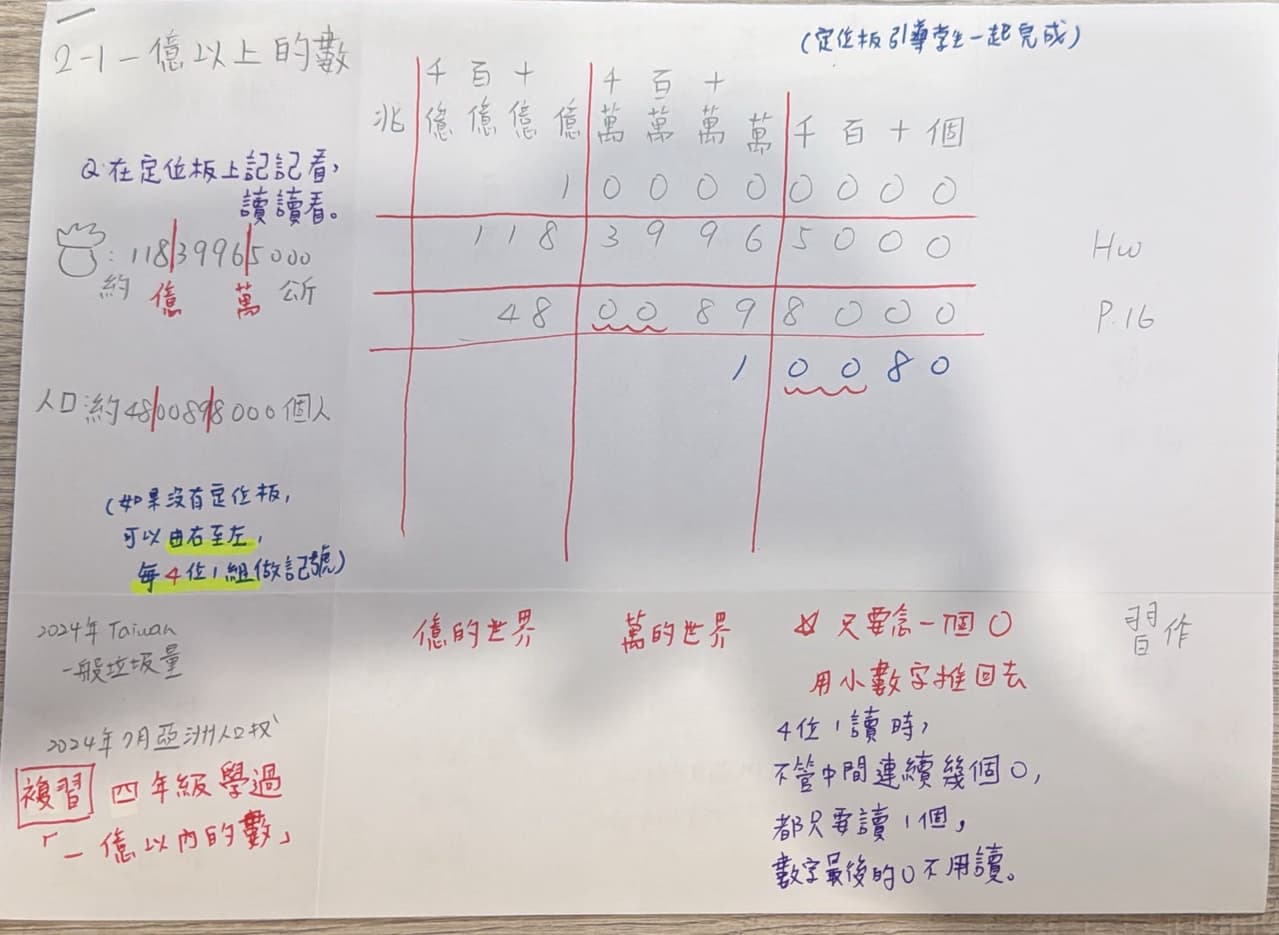 2-1 一億以上的數
(定位板引導學生一起完成)
Q:在定位板上記記看,
讀讀看。
: 118 3996 5000
約 億 萬 公斤
人口:約4800898000個人
(如果沒有定位板,
可以由右至左,
每4位1組做記號)
2024年 Taiwan
一般垃圾量
2024年7月亞洲人口
複習 四年級學過
「一億以內的數」
千 百 十 千 百 十
兆 億 億 億 億 萬 萬 萬 萬 千 百 十 個
1 0 0 0 0 0 0 0 0
1 1 8 3 9 9 6 5 0 0 0
4 8 0 0 8 9 8 0 0 0
1 0 0 8 0
億的世界 萬的世界
☆ 只要念一個0
用小數字推回去
4位1讀時,
不管中間連續幾個0,
都只要讀1個,
數字最後的0不用讀。
Hw
P.16
習作